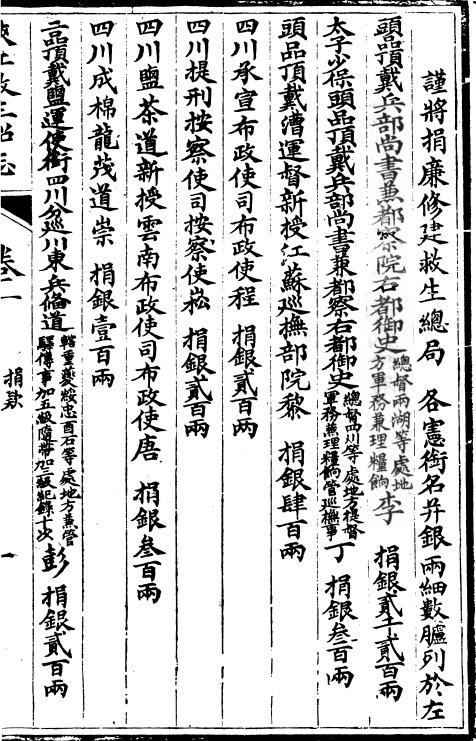 謹將捐廉修建救生總局　各憲銜名幷銀兩細數臚列於左
頭品頂戴兵部尚書兼都察院右都御史總督兩湖等處地方軍務兼理糧餉李　捐銀貳千貳百兩
太子少保頭品頂戴兵部尚書兼都察右都御史總督四川等處地方提督軍務兼理糧餉管巡撫事丁　捐銀叁百兩
頭品頂戴漕運督新授江蘇巡撫部院黎　捐銀肆百兩
四川承宣布政使司布政使程　捐銀貳百兩
四川提刑按察使司按察使崧　捐銀貳百兩
四川鹽茶道新授雲南布政使司布政使唐　捐銀叁百兩
四川成棉龍茂道崇　捐銀壹百兩
二品頂戴鹽運使銜四川分巡川東兵備道轄重夔綏忠酉石等處地方兼管驛傳事加五級隨帶加三級紀錄十次彭　捐銀貳百兩
卷二　捐款　一